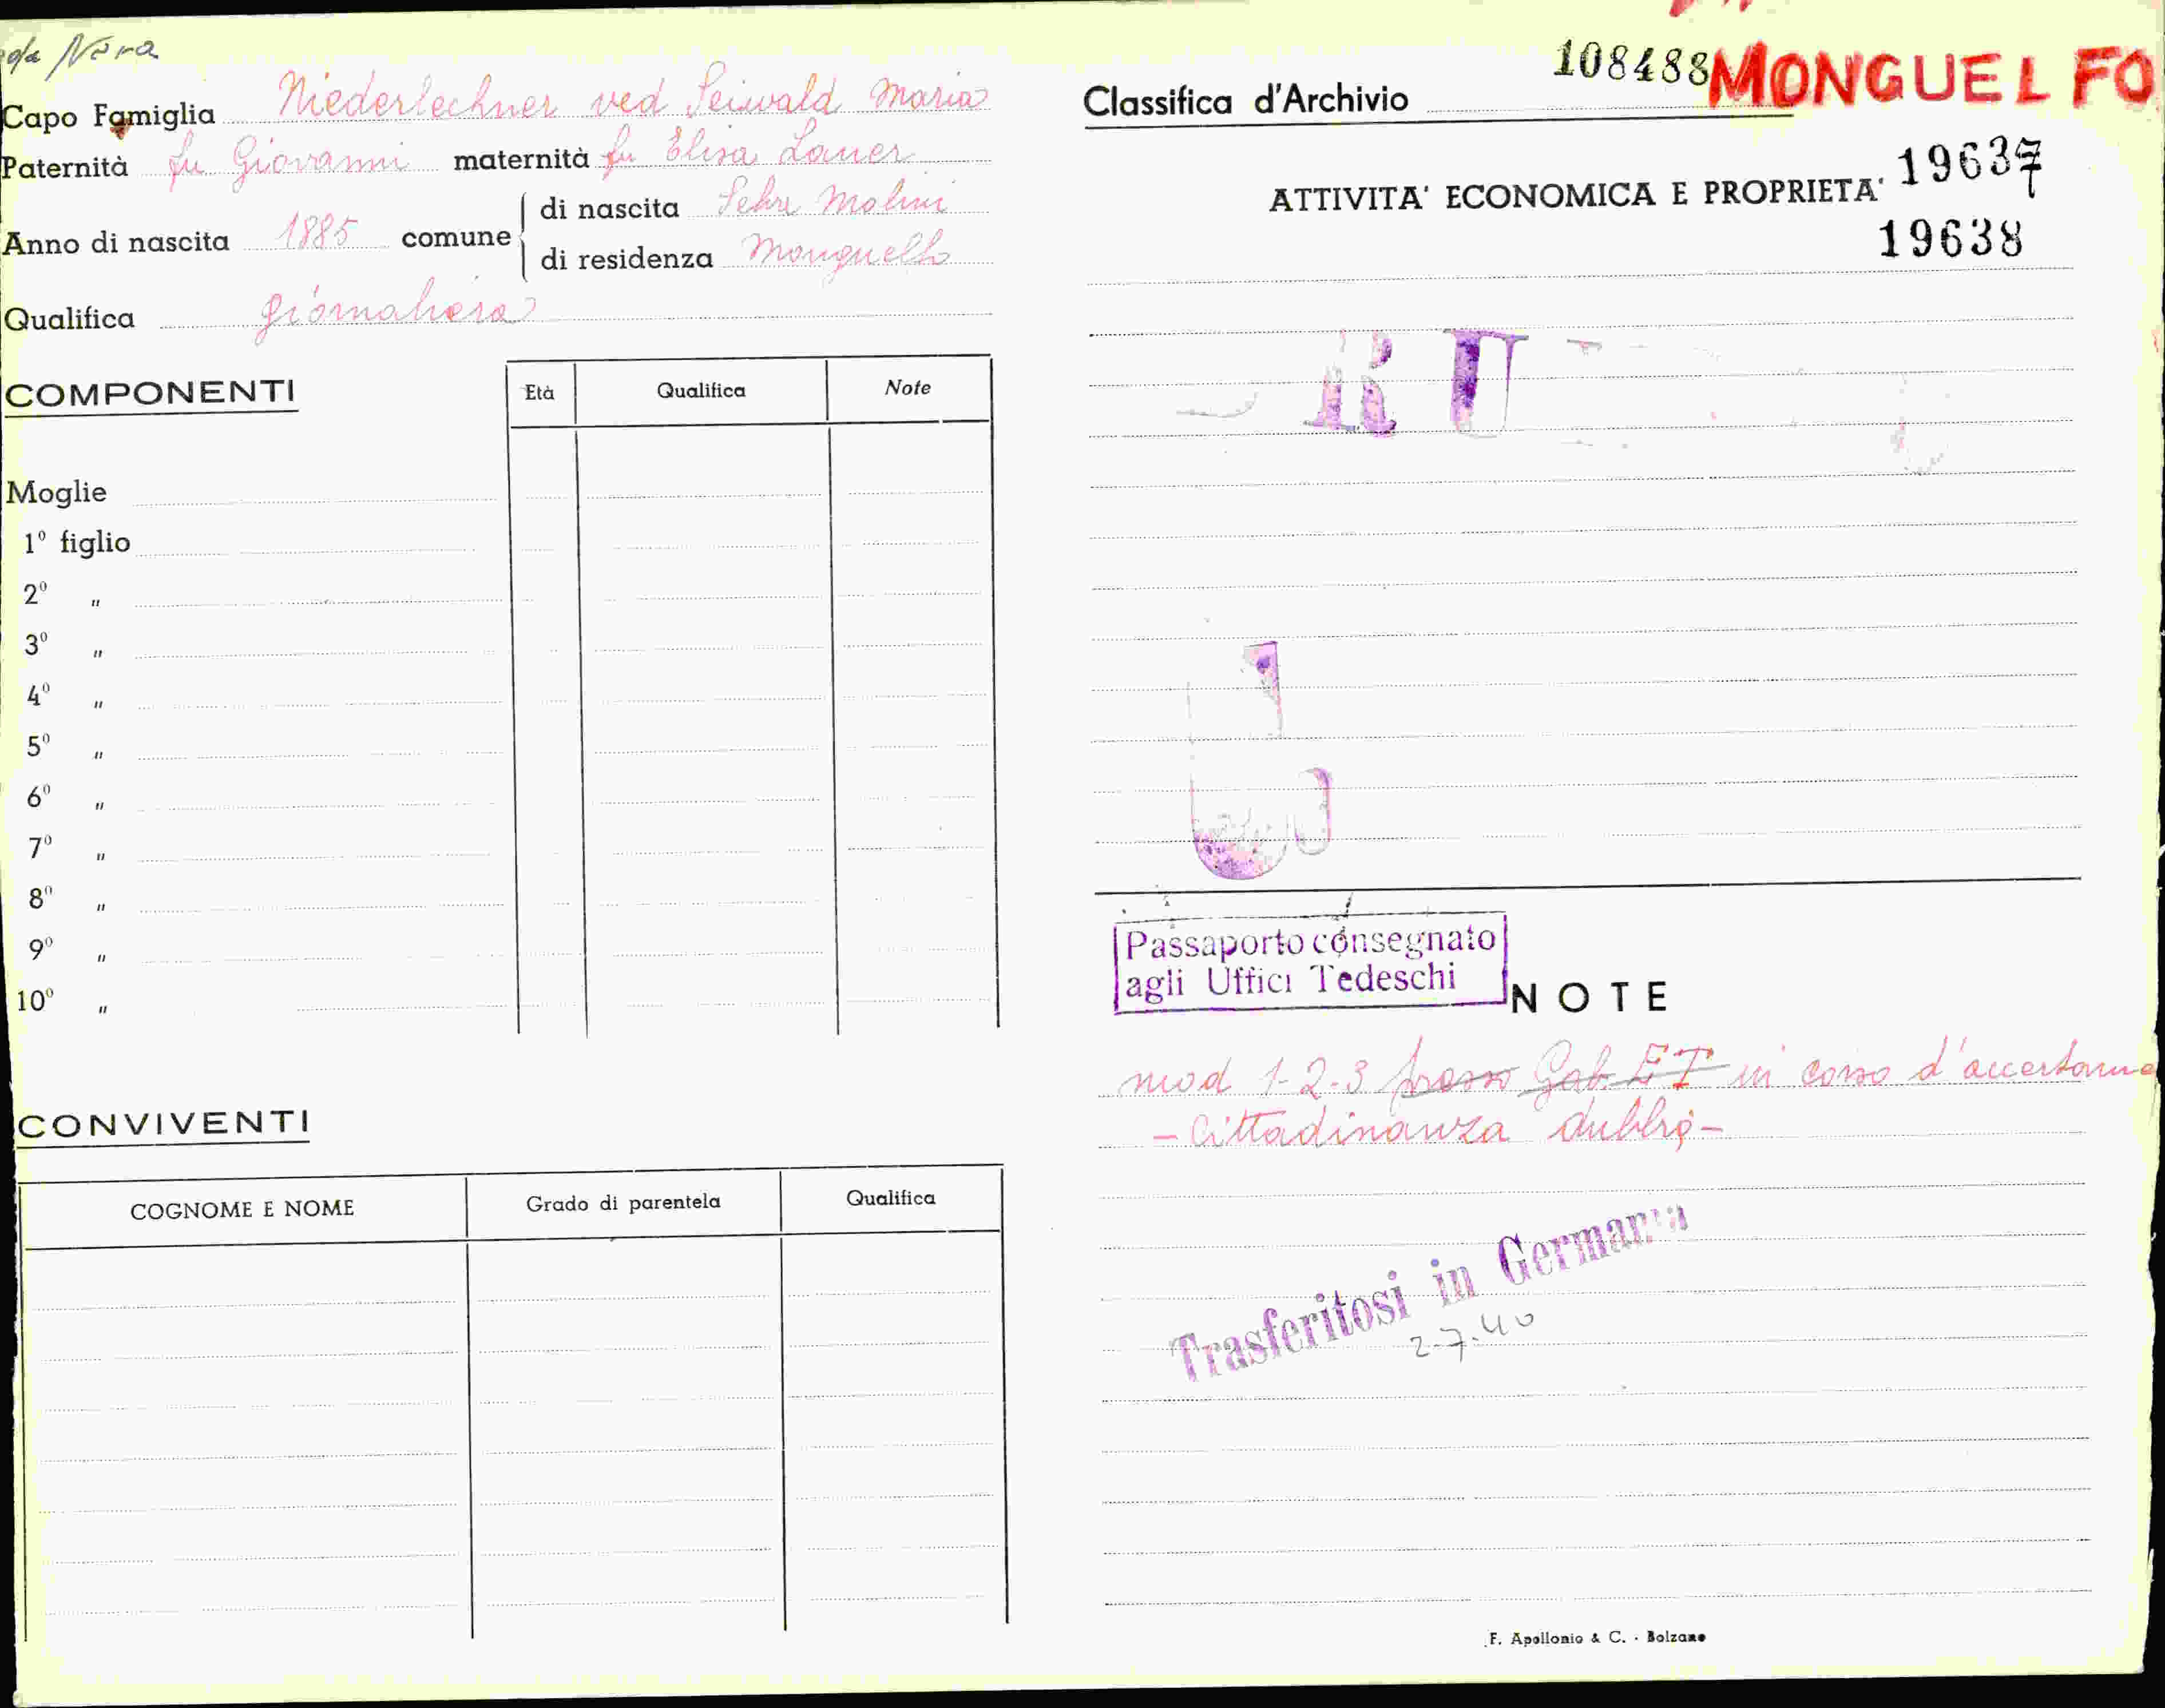 Nora
Capo Famiglia Niederlechner ved Seiwald Maria
Paternità fu Giovanni maternità fu Elisa Laner
Anno di nascita 1885 comune
di nascita Selva Molini
di residenza Monguelfo
Qualifica giornaliera
COMPONENTI
Età Qualifica Note
Moglie
1º figlio
2º "
3º "
4º "
5º "
6º "
7º "
8º "
9º "
10º "
CONVIVENTI
COGNOME E NOME Grado di parentela Qualifica
108488 MONGUELFO
Classifica d'Archivio
ATTIVITA' ECONOMICA E PROPRIETA' 19637
19638
Passaporto consegnato
agli Uffici Tedeschi
NOTE
mod 1-2-3 presso Gab. E T in corso d'accertame
- Cittadinanza dubbia -
Trasferitosi in Germania
2-7-40
F. Apollonio & C. - Bolzano